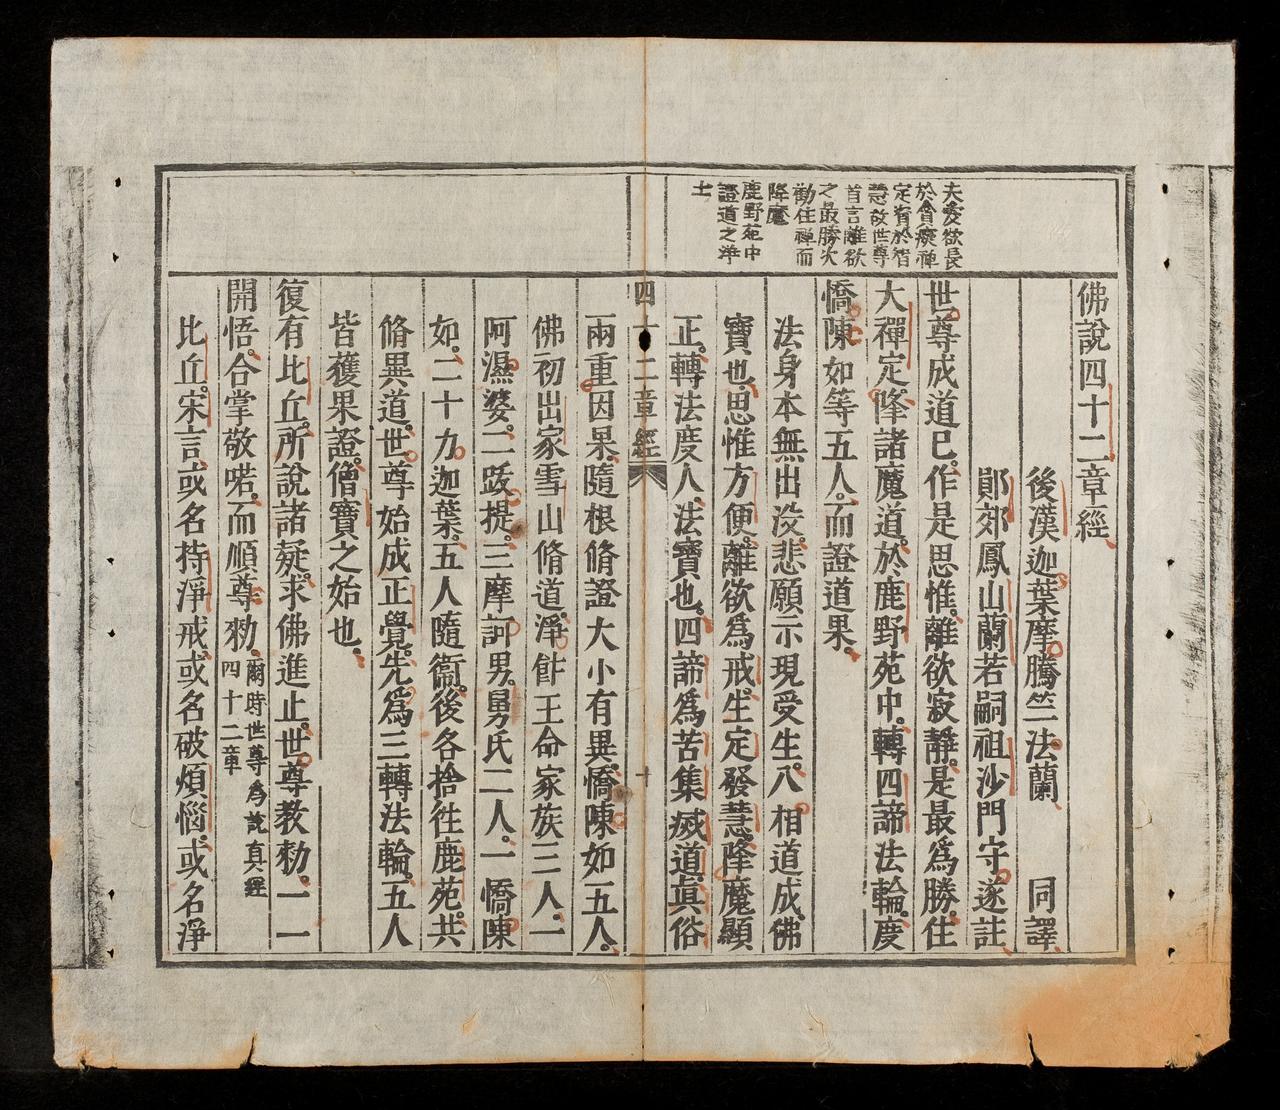 夫愛欲長
於貪癡禪
定智於智
慧故世尊
首言離欲
之最勝次
勸住禪而
降魔
鹿野苑中
證道之淨
土
佛說四十二章經
後漢迦葉摩騰竺法蘭 同譯
鄖郊鳳山蘭若嗣祖沙門守遂註
世尊成道已作是思惟離欲寂靜是最為勝住
大禪定降諸魔道於鹿野苑中轉四諦法輪度
憍陳如等五人而證道果
法身本無出沒悲願示現受生八相道成佛
寶也思惟方便離欲為戒生定發慧降魔顯
正轉法度人法寶也四諦為苦集滅道真俗
四十二章經 十
兩重因果隨根脩證大小有異憍陳如五人
佛初出家雪山脩道淨飰王命家族三人一
阿濕婆二跋提三摩訶男舅氏二人一憍陳
如二十力迦葉五人隨衞後各捨徃鹿苑共
脩異道世尊始成正覺先為三轉法輪五人
皆獲果證僧寶之始也
復有比丘所說諸疑求佛進止世尊教勑一一
開悟合掌敬喏而順尊勑爾時世尊為說真經
四十二章
比丘宋言或名持淨戒或名破煩惱或名淨